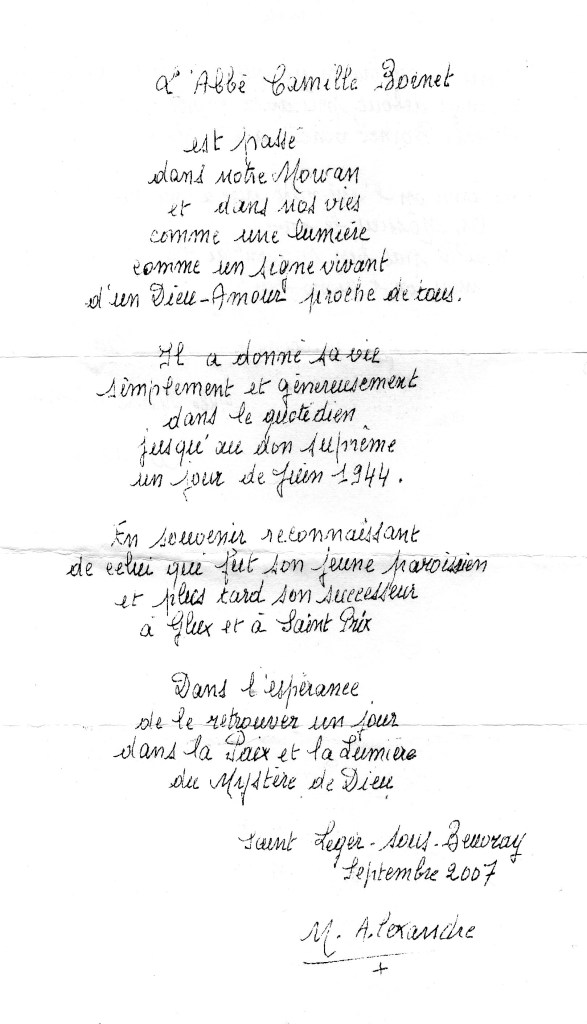 L'Abbé Camille Boinet
est passé
dans notre Morvan
et dans nos vies
comme une lumière
comme un signe vivant
d'un Dieu-Amour proche de tous.
Il a donné sa vie
simplement et généreusement
dans le quotidien
jusqu'au don suprême
un jour de Juin 1944.
En souvenir reconnaissant
de celui qui fut son jeune paroissien
et plus tard son successeur
à Glux et à Saint Prix
Dans l'espérance
de le retrouver un jour
dans la Paix et la Lumière
du Mystère de Dieu
Saint Léger-sous-Beuvray
Septembre 2007
M. Alexandre
+